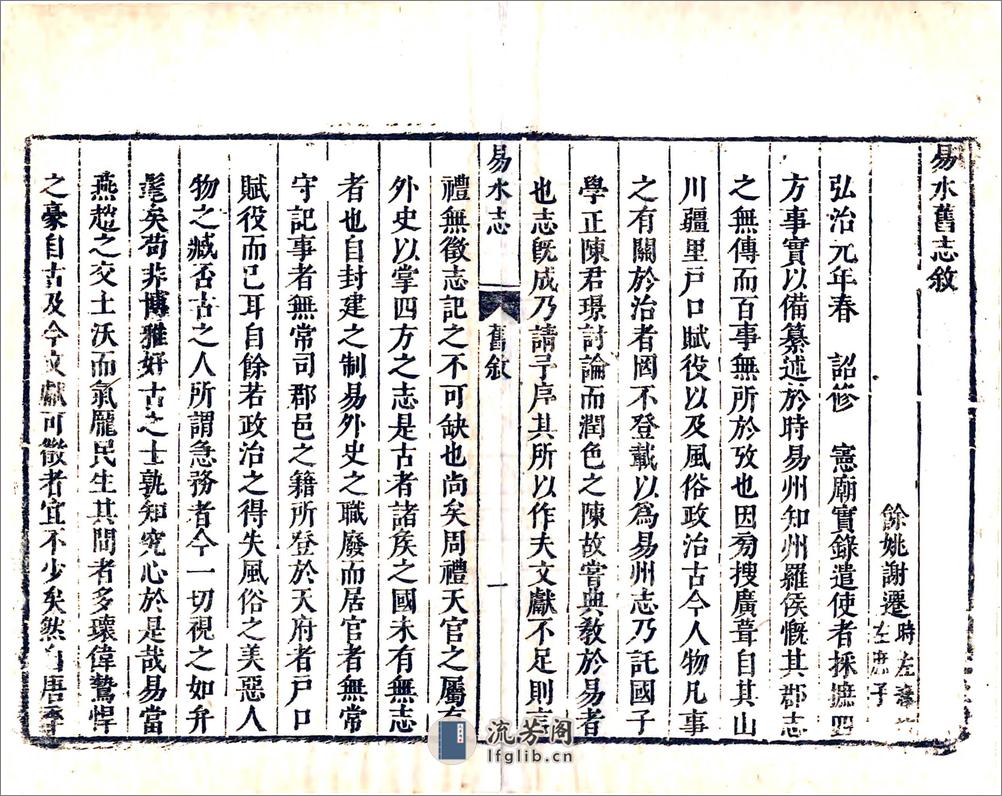 易水舊志敘
餘姚謝遷時左
左庶子
弘治元年春　詔修　憲廟實錄遣使者採摭四
方事實以備纂述於時易州知州羅侯慨其郡志
之無傳而百事無所於攷也因旁搜廣葺自其山
川疆里戶口賦役以及風俗政治古今人物凡事
之有關於治者罔不登載以為易州志乃託國子
學正陳君璟討論而潤色之陳故嘗典教於易者
也志既成乃請予序其所以作夫文獻不足則
易水志
舊敘
一
禮無徵志記之不可缺也尚矣周禮天官之屬有
外史以掌四方之志是古者諸矦之國未有無志
者也自封建之制易外史之職廢而居官者無常
守記事者無常司郡邑之籍所登於天府者戶口
賦役而已耳自餘若政治之得失風俗之美惡人
物之臧否古之人所謂急務者今一切視之如弁
髦矣苟非博雅好古之士孰知究心於是哉易當
燕趙之交土沃而氣厖民生其間者多瓌偉驁悍
之豪自古及今文獻可徵者宜不少矣然自唐
流芳阁
lfglib.cn